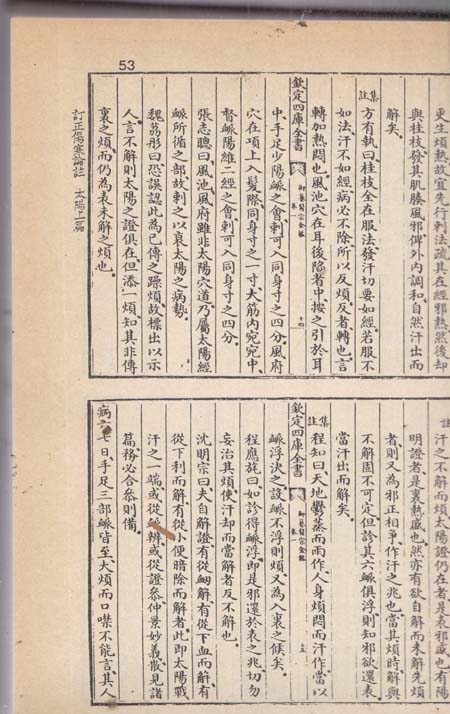 53
更生煩熱故宜先行刺法疏其在經邪熱然後却
與桂枝發其肌腠風邪俾外內調和自然汗出而
解矣。
集註方有執曰桂枝全在服法發汗切要如經若服不
如法汗不如經病必不除所以反煩反者轉也言
轉加熱悶也。風池穴在耳後陷者中按之引於耳
欽定四庫全書 御纂醫宗金鑑 卷一 十四
中手足少陽脈之會刺可入同身寸之四分風府
穴在項上入髮際同身寸之一寸大筋內宛宛中
督脈陽維二經之會刺可入同身寸之四分。
張志聰曰風池風府雖非太陽穴道乃屬太陽經
脈所循之部故刺之以衰太陽之病勢。
魏荔彤曰恐誤認此為已傳之躁煩故標出以示
人言不解則太陽之證俱在但添一煩知其非傳
裏之煩而仍為表未解之煩也。
註汗之不解而煩太陽證仍在者是表邪盛也有陽
明證者是裏熱盛也然亦有欲自解而未解先煩
者則又為邪正相爭作汗之兆也當其煩時解與
不解固不可定但診其六脈俱浮則知邪欲還表
當汗出而解矣。
集註程知曰天地鬱蒸而雨作人身煩悶而汗作當以
欽定四庫全書 御纂醫宗金鑑 卷一
脈浮決之設脈不浮則煩又為入裏之候矣。
程應旄曰如診得脈浮即是邪還於表之兆切勿
妄治其煩使汗却而當解者反不解也。
沈明宗曰夫自解證有從衂解有從下血而解有
從下利而解有從小便暗除而解者此即太陽戰
汗之一端或從辨或從證參仲景妙義散見諸
篇務必合參則備。
病六七日手足三部脈皆至大煩而口噤不能言其人
訂正傷寒論註 太陽上篇